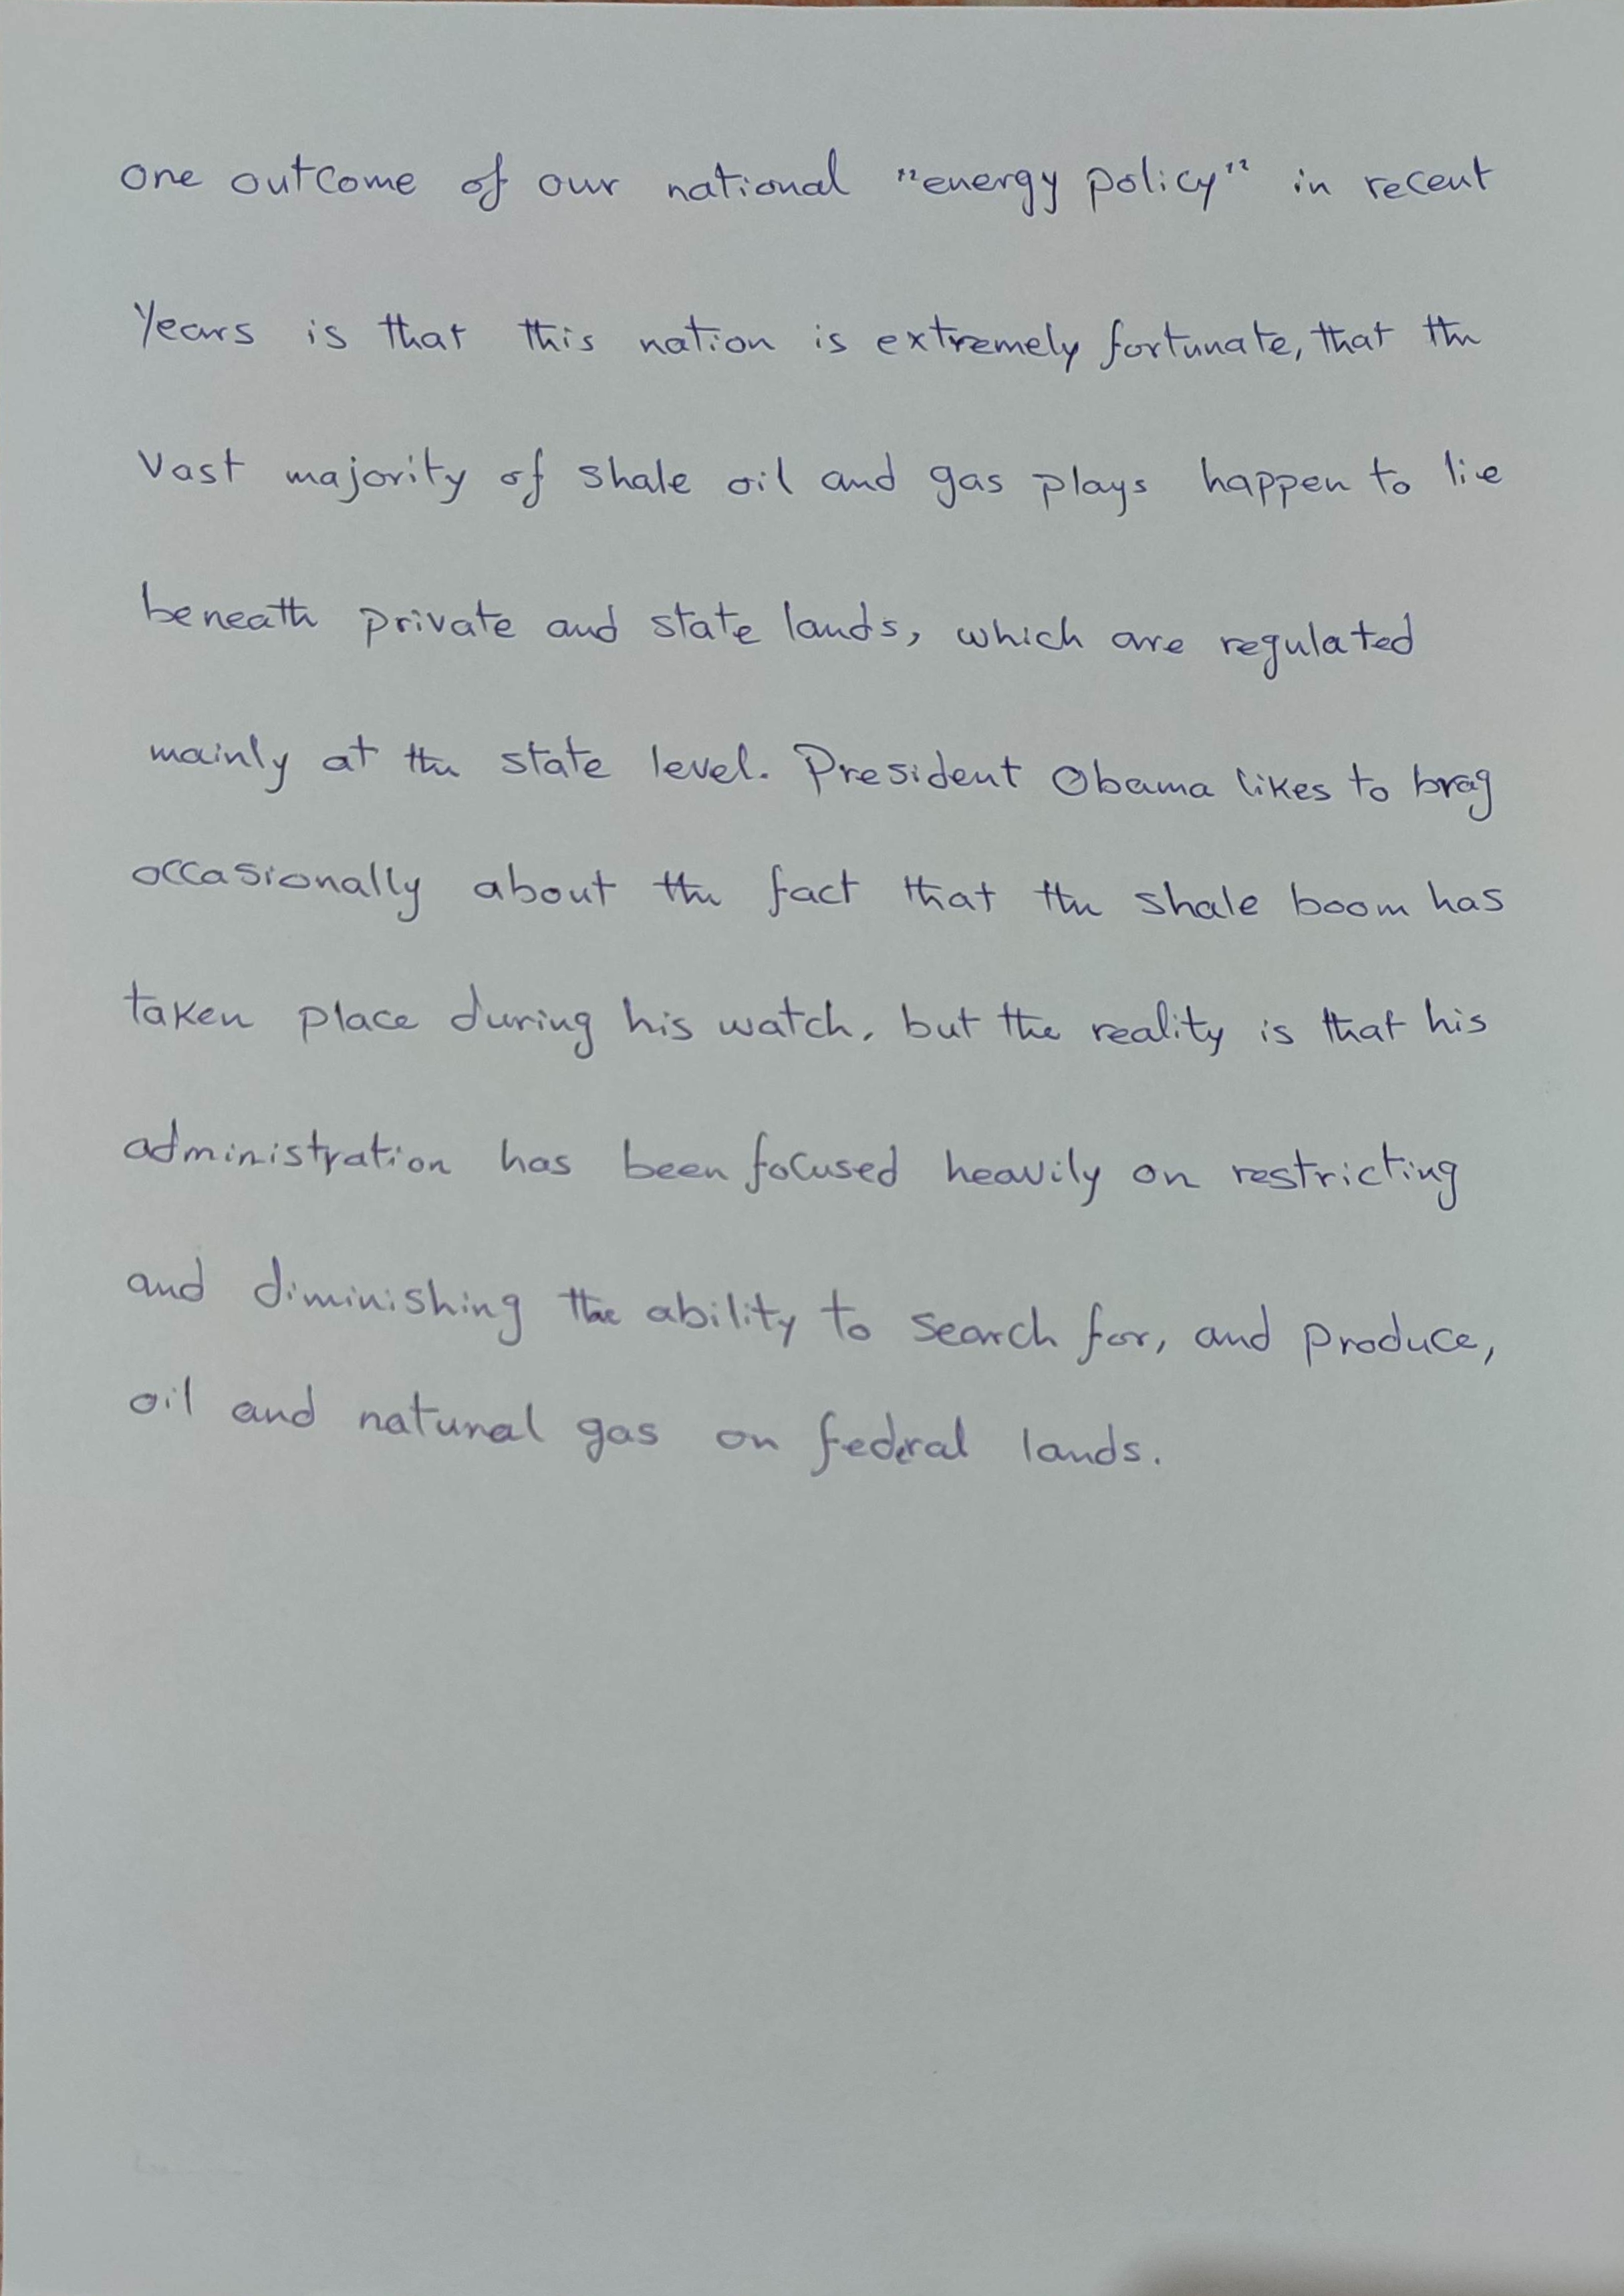 one outcome of our national "energy policy" in recent
Years is that this nation is extremely fortunate, that the
vast majority of shale oil and gas plays happen to lie
beneath private and state lands, which are regulated
mainly at the state level. President Obama likes to brag
occasionally about the fact that the shale boom has
taken place during his watch, but the reality is that his
administration has been focused heavily on restricting
and diminishing the ability to search for, and produce,
oil and natural gas on federal lands.